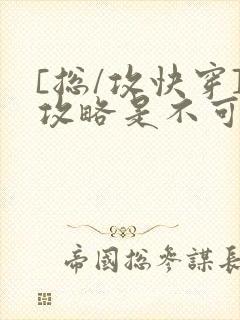 [总/攻快穿]
攻略是不可
帝國总参謀長